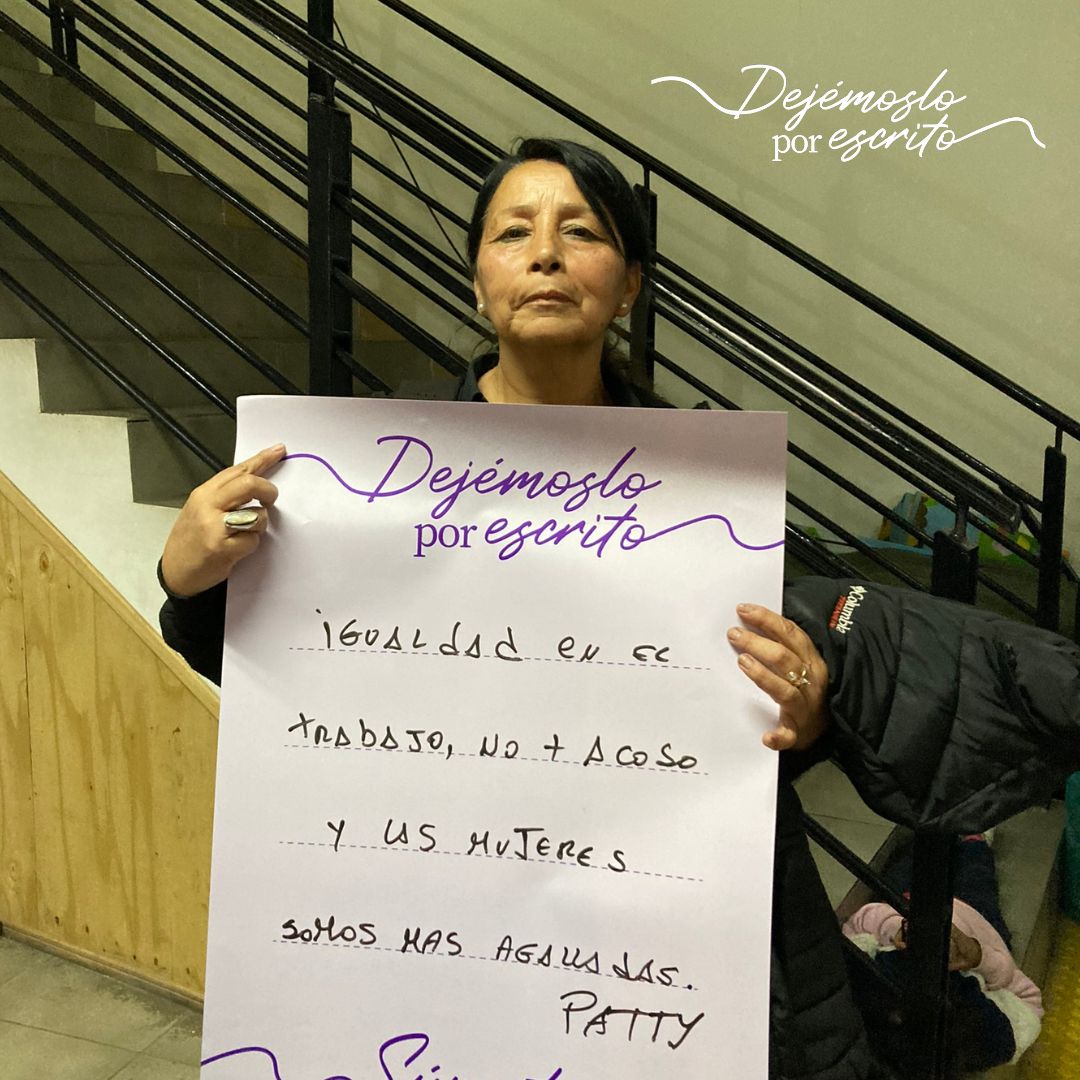 Dejémoslo
por escrito
Dejémoslo
por escrito
iGUALdAd eN EL
tRAbAJO, NO + ACOSO
Y LAS MUJERES
SOMOS MAS AGALLADAS.
PATTY
Columbia
TITANIUM